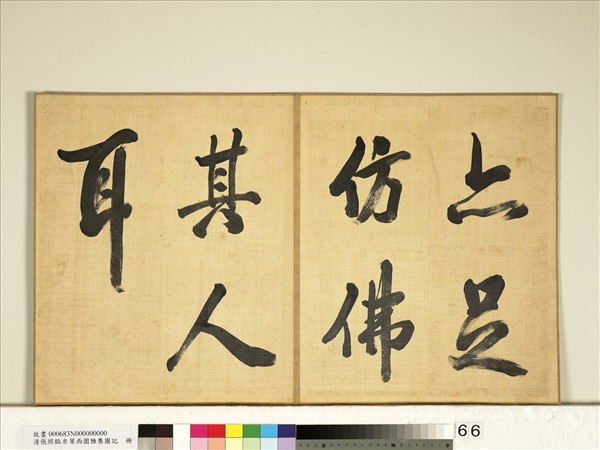 亦足
仿佛
其人
耳
故書 000683N000000000
清張照臨米芾西園雅集圖記 冊
66